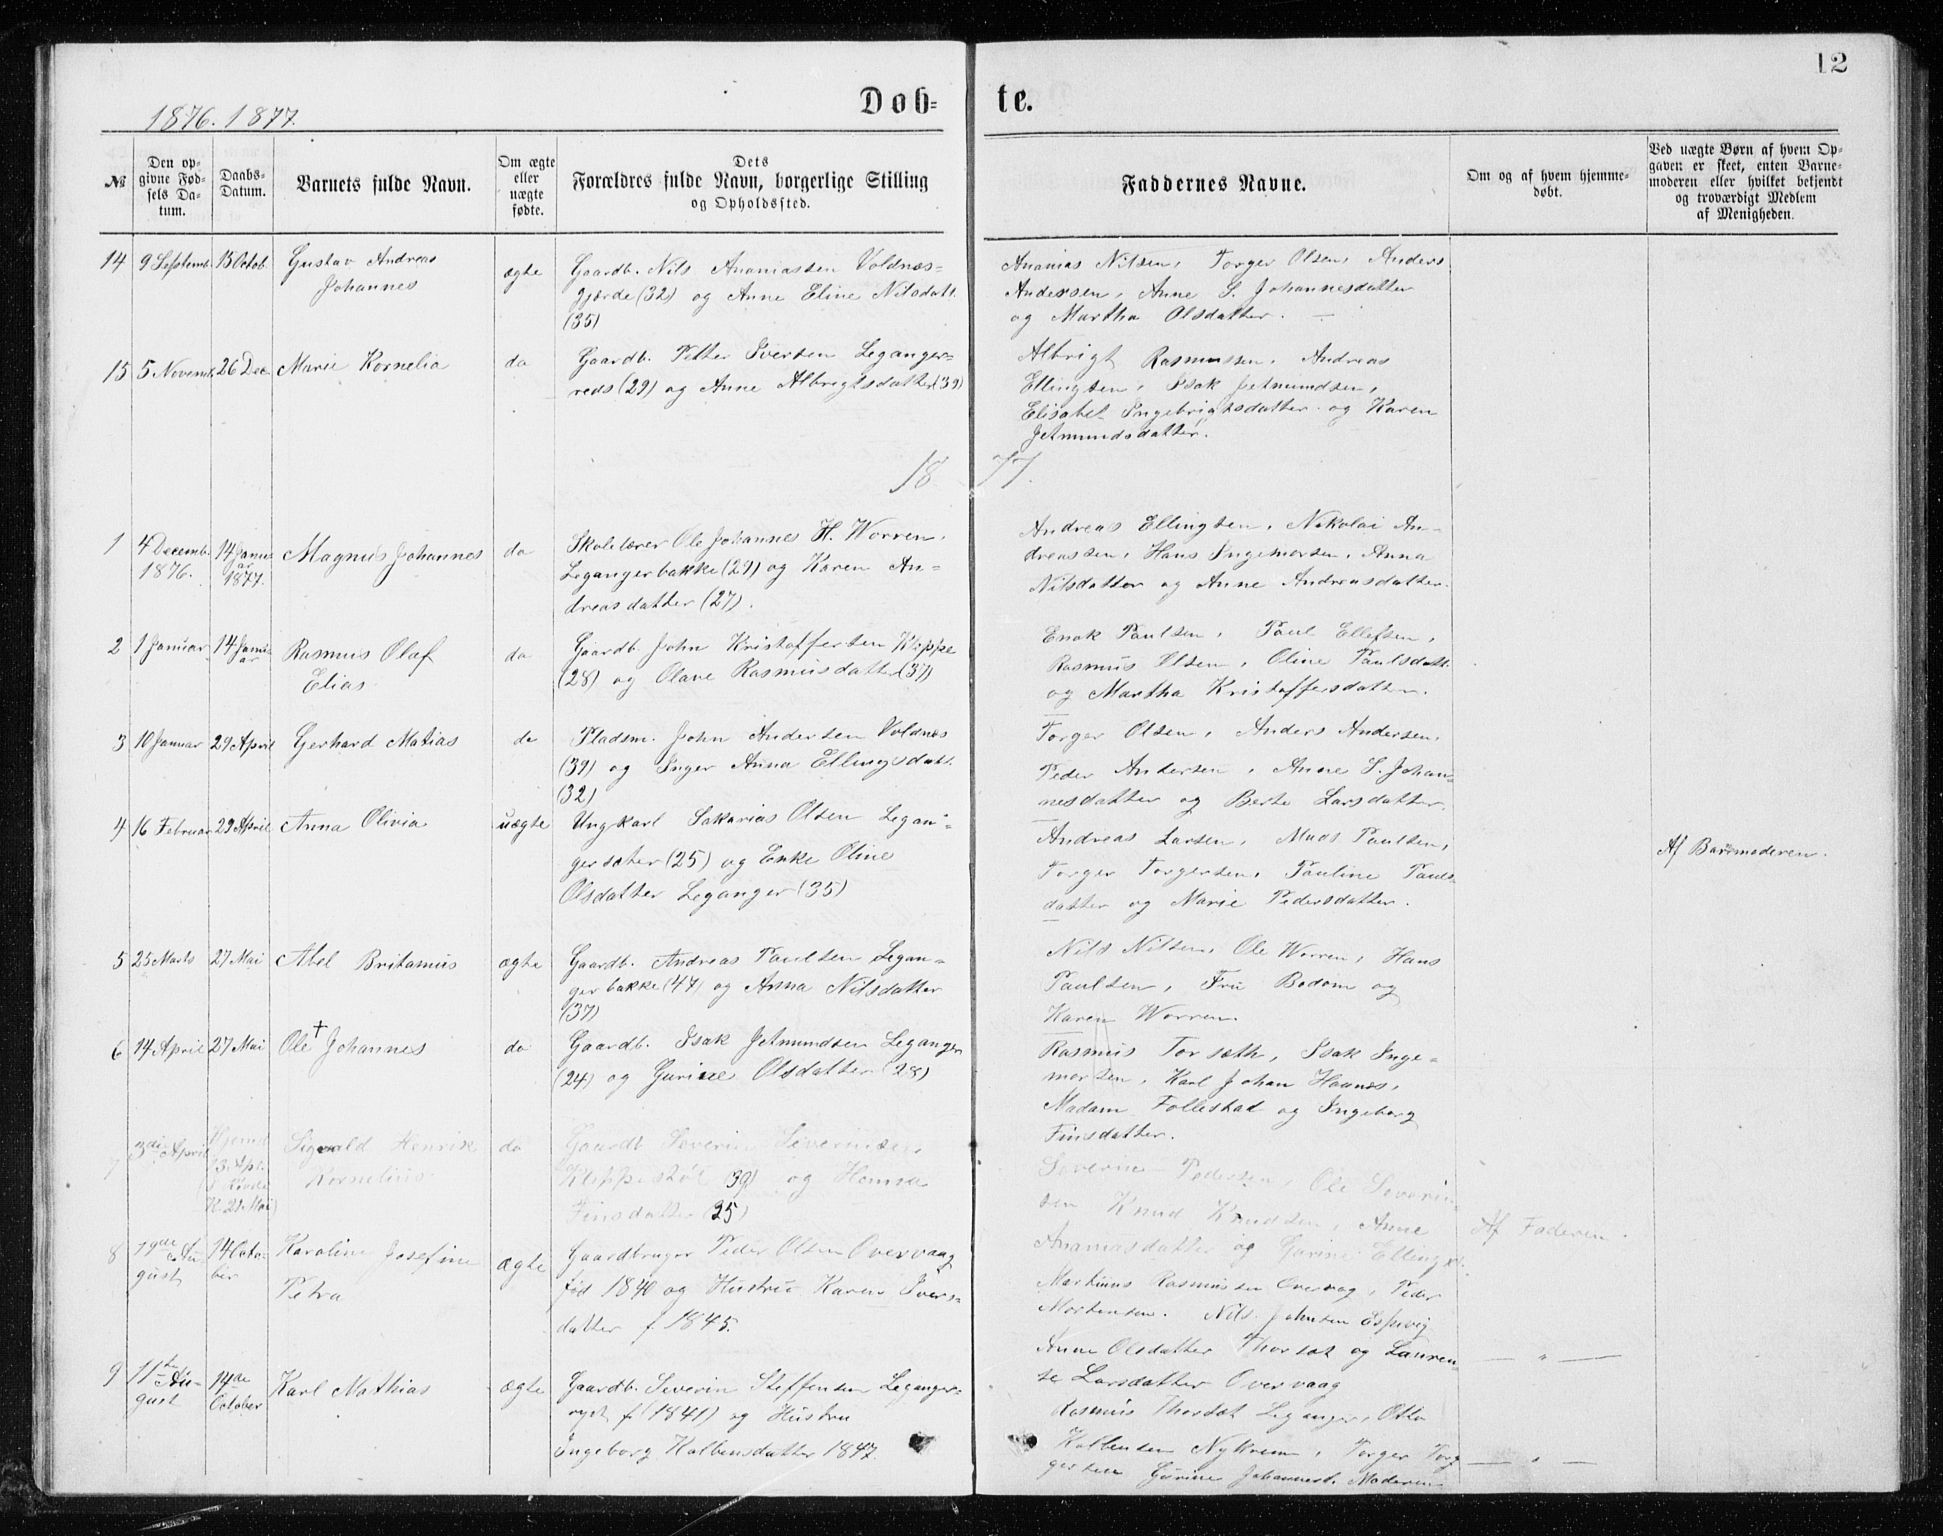 12
Døb-
te.
1876. 1877.
№
Den op-
givne Fød-
sels Da-
tum.
Daabs-
Datum.
Barnets fulde Navn.
Om ægte
eller
uægte
fødte.
Dets
Forældres fulde Navn, borgerlige Stilling
og Opholdssted.
Faddernes Navne.
Om og af hvem hjemme-
døbt.
Ved uægte Børn af hvem Op-
gaven er skeet, enten Barne-
moderen eller hvilket bekjendt
og troværdigt Medlem
af Menigheden.
14 9 Septemb. 15 Octob. Gustav Andreas
Johannes
ægte
Gaardb. Nils Ananiassen Voldnæs-
gjærde (32) og Anne Eline Nilsdatt.
(35)
Ananias Nilsen, Torger Olsen, Anders
Andersen, Anne S. Johannesdatter
og Martha Olsdatter.
15 5 Novemb. 26 Dec. Marie Kornelia
do
Gaardb. Petter Iversen Leganger-
(29) og Anne Albrigtsdatter (39)
Albrigt Rasmussen, Andreas
Ellingsen, Isak Jetmundsen,
Elisabet Ingebrigtsdatter og Karen
Jetmundsdatter.
1877.
1 4 Decemb.
1876.
14 Janu-
ar
1877.
Magnus Johannes
do
Skolelærer Ole Johannes H. Worren,
Legangerbakke (29) og Karen An-
dreasdatter (27).
Andreas Ellingsen, Nikolai An-
dreassen, Hans Ingemorsen, Anna
Nilsdatter og Anne Andreasdatter.
2 1 Januar 14 Janu-
ar
Rasmus Olaf
Elias
do
Gaardb. John Kristoffersen Kleppe
(28) og Olave Rasmusdatter (37)
Enok Paulsen, Paul Ellefsen,
Rasmus Olsen, Oline Paulsdatt.
og Martha Kristoffersdatter.
3 10 Januar 29 April Gerhard Matias
do
Pladsm. John Andersen Voldnæs
(39) og Inger Anna Ellingsdatt.
(32)
Torger Olsen, Anders Andersen,
Peder Andersen, Anne S. Johan-
nesdatter og Berte Larsdatter.
4 16 Februar 29 April Anna Olivia
uægte
Ungkarl Sakarias Olsen Legan-
gersæter (25) og Enke Oline
Olsdatter Leganger (35)
Andreas Larsen, Mads Paulsen,
Torger Torgersen, Pauline Pauls-
datter og Marie Pedersdatter.
Af Barnemoderen.
5 25 Marts 27 Mai Abel Britanius
ægte
Gaardb. Andreas Paulsen Legan-
gerbakke (47) og Anna Nilsdatter
(37)
Nils Nilsen, Ole Worren, Hans
Paulsen, Fru Bodom og
Karen Worren.
6 14 April 27 Mai Ole † Johannes
do
Gaardb. Isak Jetmundsen Leganger
(24) og Gurine Olsdatter (28)
Rasmus Torsæth, Isak Inge-
morsen, Karl Johan Haanæs,
Madam Follestad og Ingeborg
Finsdatter.
7 3die April Hjemd.
13 Apr.
K. 21 Mai
Sigvald Henrik
Kornelius
do
Gaardb. Severin Severinsen,
Kleppestøl (39) og Hanna
Finsdatter (35)
Severin Pedersen, Ole Severin-
sen Knud Knudsen, Anne
Ananiasdatter og Gurine Ellingsd.
Af Faderen.
8 19de Au-
gust
14 Octo-
ber
Karoline Josefine
Petra
ægte
Gaardbruger Peder Olsen Overvaag
fød 1840 og Hustru Karen Ivers-
datter f. 1845.
Martinus Rasmussen Overvaag, Peder
Mortensen. Nils Johnsen Espevig
Anne Olsdatter Thorsæt og Lauren-
se Larsdatter Overvaag
— " —
9 11te Au-
gust
14de
October
Karl Mathias
ægte
Gaardb. Severin Steffensen Leganger-
f. (1841) og Hustru
Ingeborg Kolbensdatter 1847.
Rasmus Thorsæt Leganger, Otto
Kolbensen Nykrem, Torger Torg
gersen Gurine Johannesd. Moderen
— " —